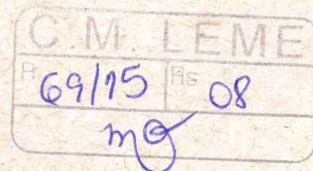 C.M. LEME
P. 69/15 Fls 08